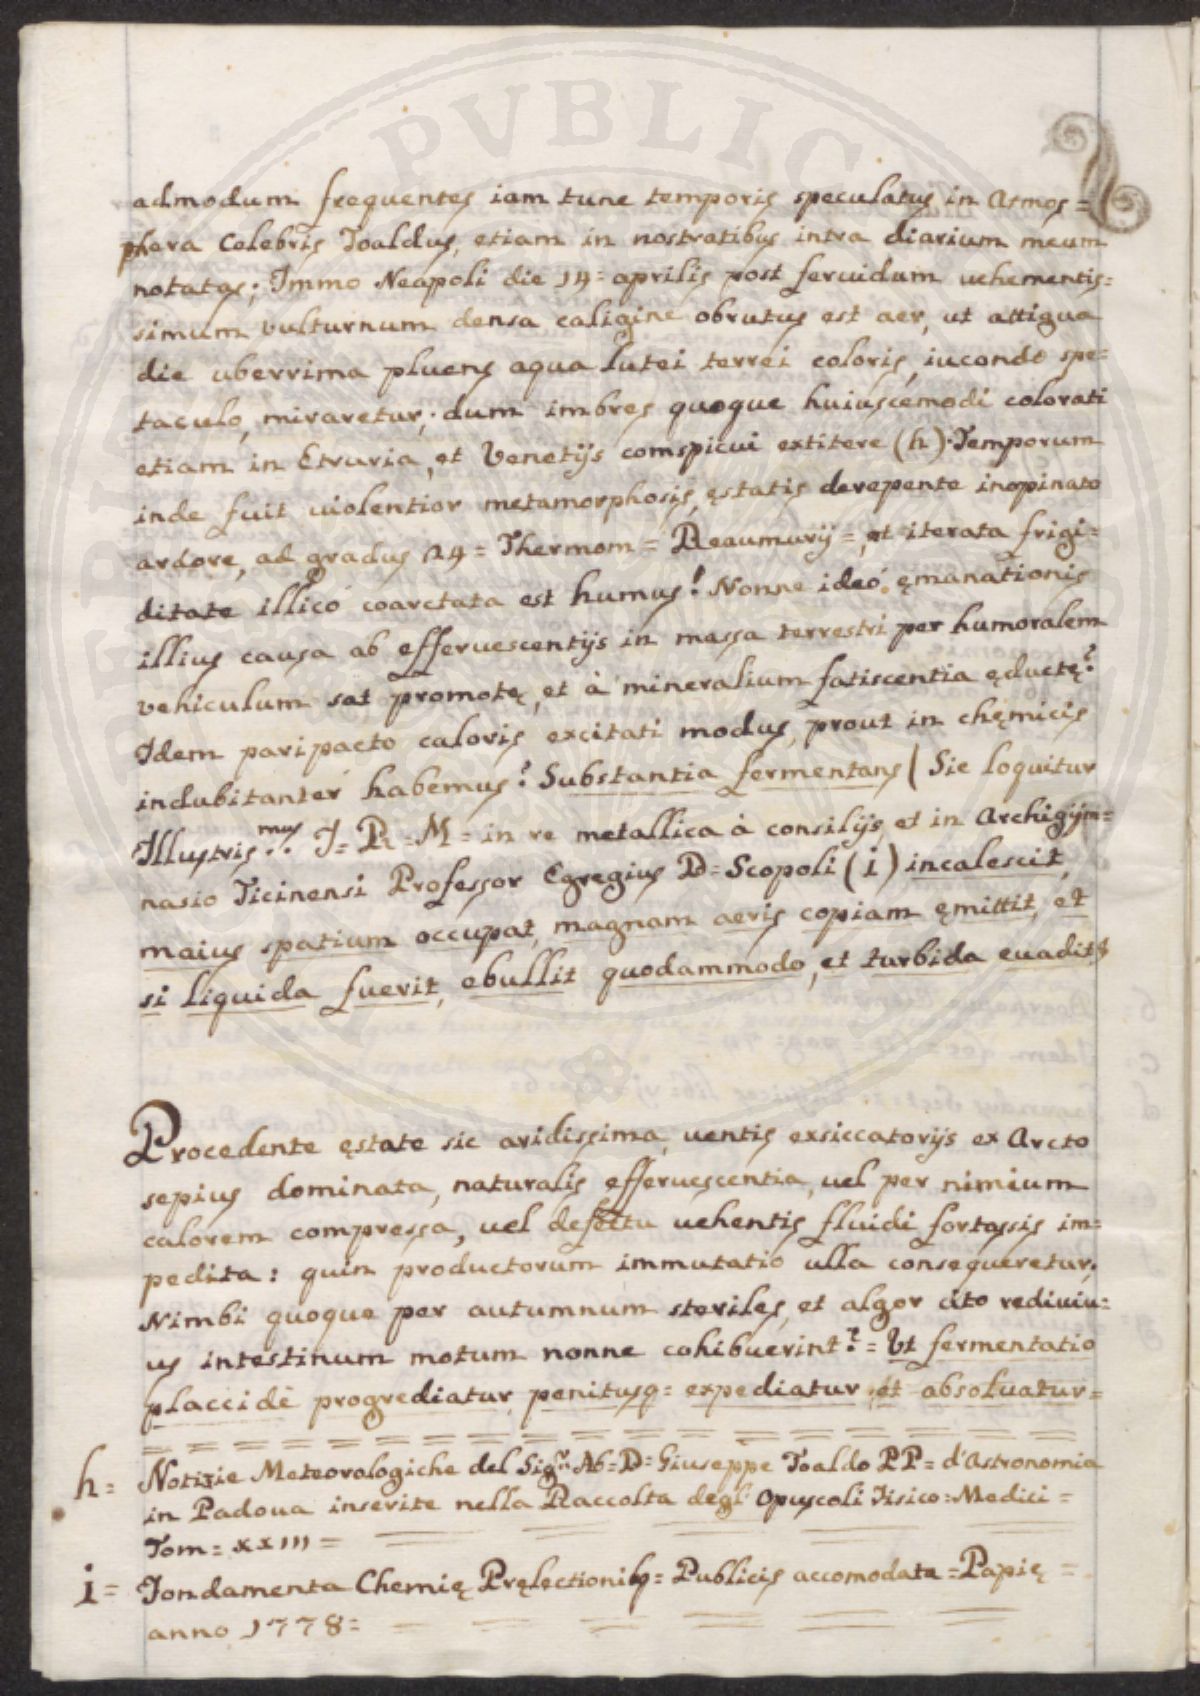 admodum frequentes iam tunc temporis speculatus in Atmos=
phera Celebris Toaldus, etiam in nostratibus intra diarium meum
notatas; Immo Neapoli die 14= aprilis post feruidum uehementis=
simum vulturnum densa caligine obrutus est aer, ut attigua
die uberrima pluens aqua lutei terrei coloris, iucondo spe=
taculo, miraretur; dum imbres quoque huiuscemodi colorati
etiam in Etruria, et Venetijs comspicui extitere (h). Temporum
inde fuit uiolentior metamorphosis, ęstatis derepente inopinato
ardore, ad gradus 24= Thermom= Reaumurij=, et iterata frigi=
ditate illicó coarctata est humus! Nonne ideó ęmanationis
illius causa ab efferuescentijs in massa terrestri per humoralem
vehiculum sat promotę, et à mineralium fatiscentia ęductę?
Idem pari pacto caloris excitati modus, prout in chęmicis
indubitanter habemus? Substantia fermentans (Sic loquitur
Illustris.mus I= R= M= in re metallica à consilijs et in Archigym=
nasio Ticinensi Professor Egregius D= Scopoli (i) incalescit,
maius spatium occupat, magnam aeris copiam ęmittit, et
si liquida fuerit, ebullit quodammodo, et turbida euadit?
Procedente ęstate sic aridissima, uentis exsiccatorijs ex Arcto
sepius dominata, naturalis efferuescentia, uel per nimium
calorem compressa, uel defectu uehentis fluidi fortassis im=
pedita: quin productorum immutatio ulla consequeretur;
Nimbi quoque per autumnum steriles, et algor cito rediuiu=
us intestinum motum nonne cohibuerint? = Ut fermentatio
placcidè progrediatur, penitusq= expediatur, et absoluatur=
h= Notizie Meteorologiche del Sigr. Ab= D= Giuseppe Toaldo PP= d'Astronomia
in Padova inserite nella Raccolta degl' Opuscoli Fisico=Medici=
Tom= XXIII=
i= Fondamenta Chemię Pręlectionibq= Publicis accomodata= Papię=
anno 1778=